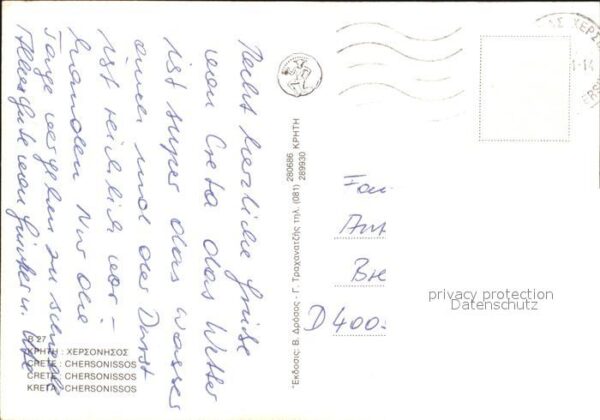 Recht herzliche Grüße
von Creta das Wetter
ist super das Wasser
auch und der Durst
ist reichlich vor-
handen Nur die
Tage vergehen zu schnell
Alles Gute von Günter u. Ute
B 27
ΚΡΗΤΗ : ΧΕΡΣΟΝΗΣΟΣ
CRETE : CHERSONISSOS
CRETE : CHERSONISSOS
KRETA : CHERSONISSOS
Έκδοσεις: Β. Δρόσος - Γ. Τραχανατζής τηλ. (081) 280686 289930 ΚΡΗΤΗ
ΧΕΡΣΟ
Fam
D 400
privacy protection
Datenschutz